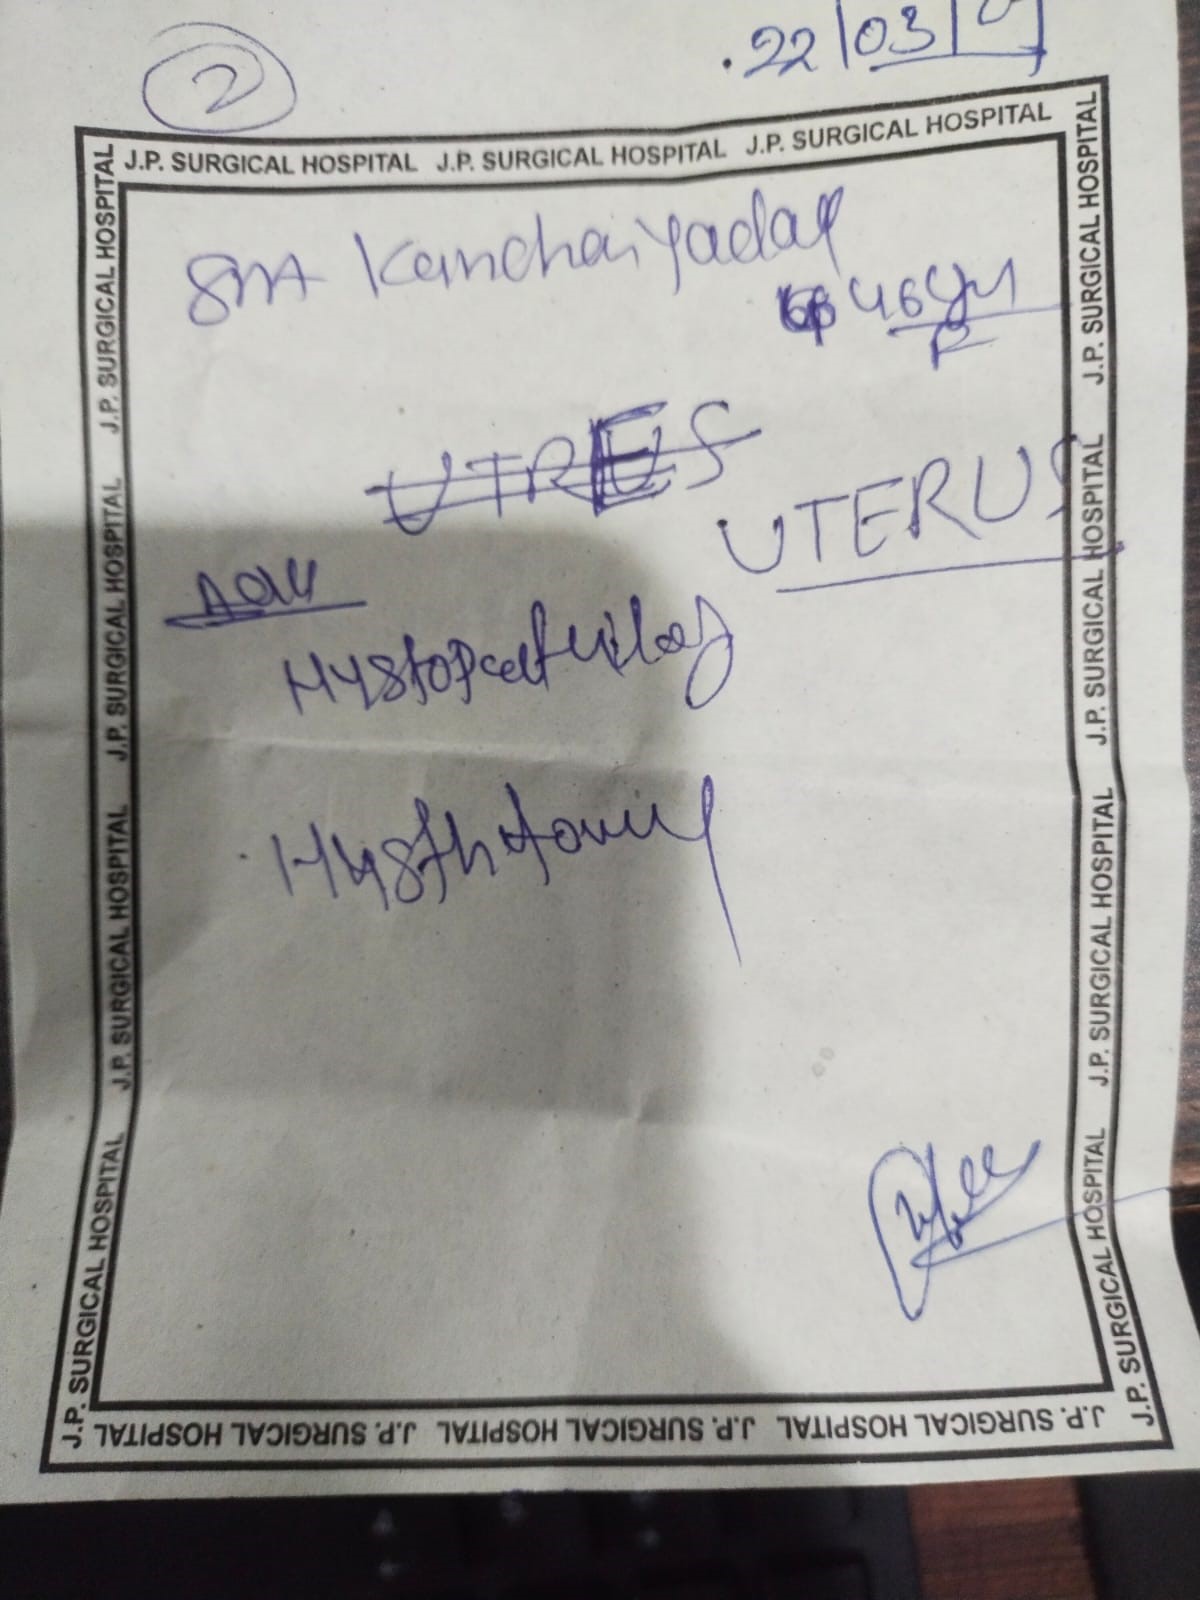 2
.22/03/
J.P. SURGICAL HOSPITAL J.P. SURGICAL HOSPITAL J.P. SURGICAL HOSPITAL
Smt Kanchan Yadav
46 yrs
F
UTRES
UTERUS
Adv
Hystopathology
Hysthtomy
J.P. SURGICAL HOSPITAL J.P. SURGICAL HOSPITAL J.P. SURGICAL HOSPITAL J.P. SURGICAL HOSPITAL
J.P. SURGICAL HOSPITAL J.P. SURGICAL HOSPITAL J.P. SURGICAL HOSPITAL J.P. SURGICAL HOSPITAL
J.P. SURGICAL HOSPITAL J.P. SURGICAL HOSPITAL J.P. SURGICAL HOSPITAL